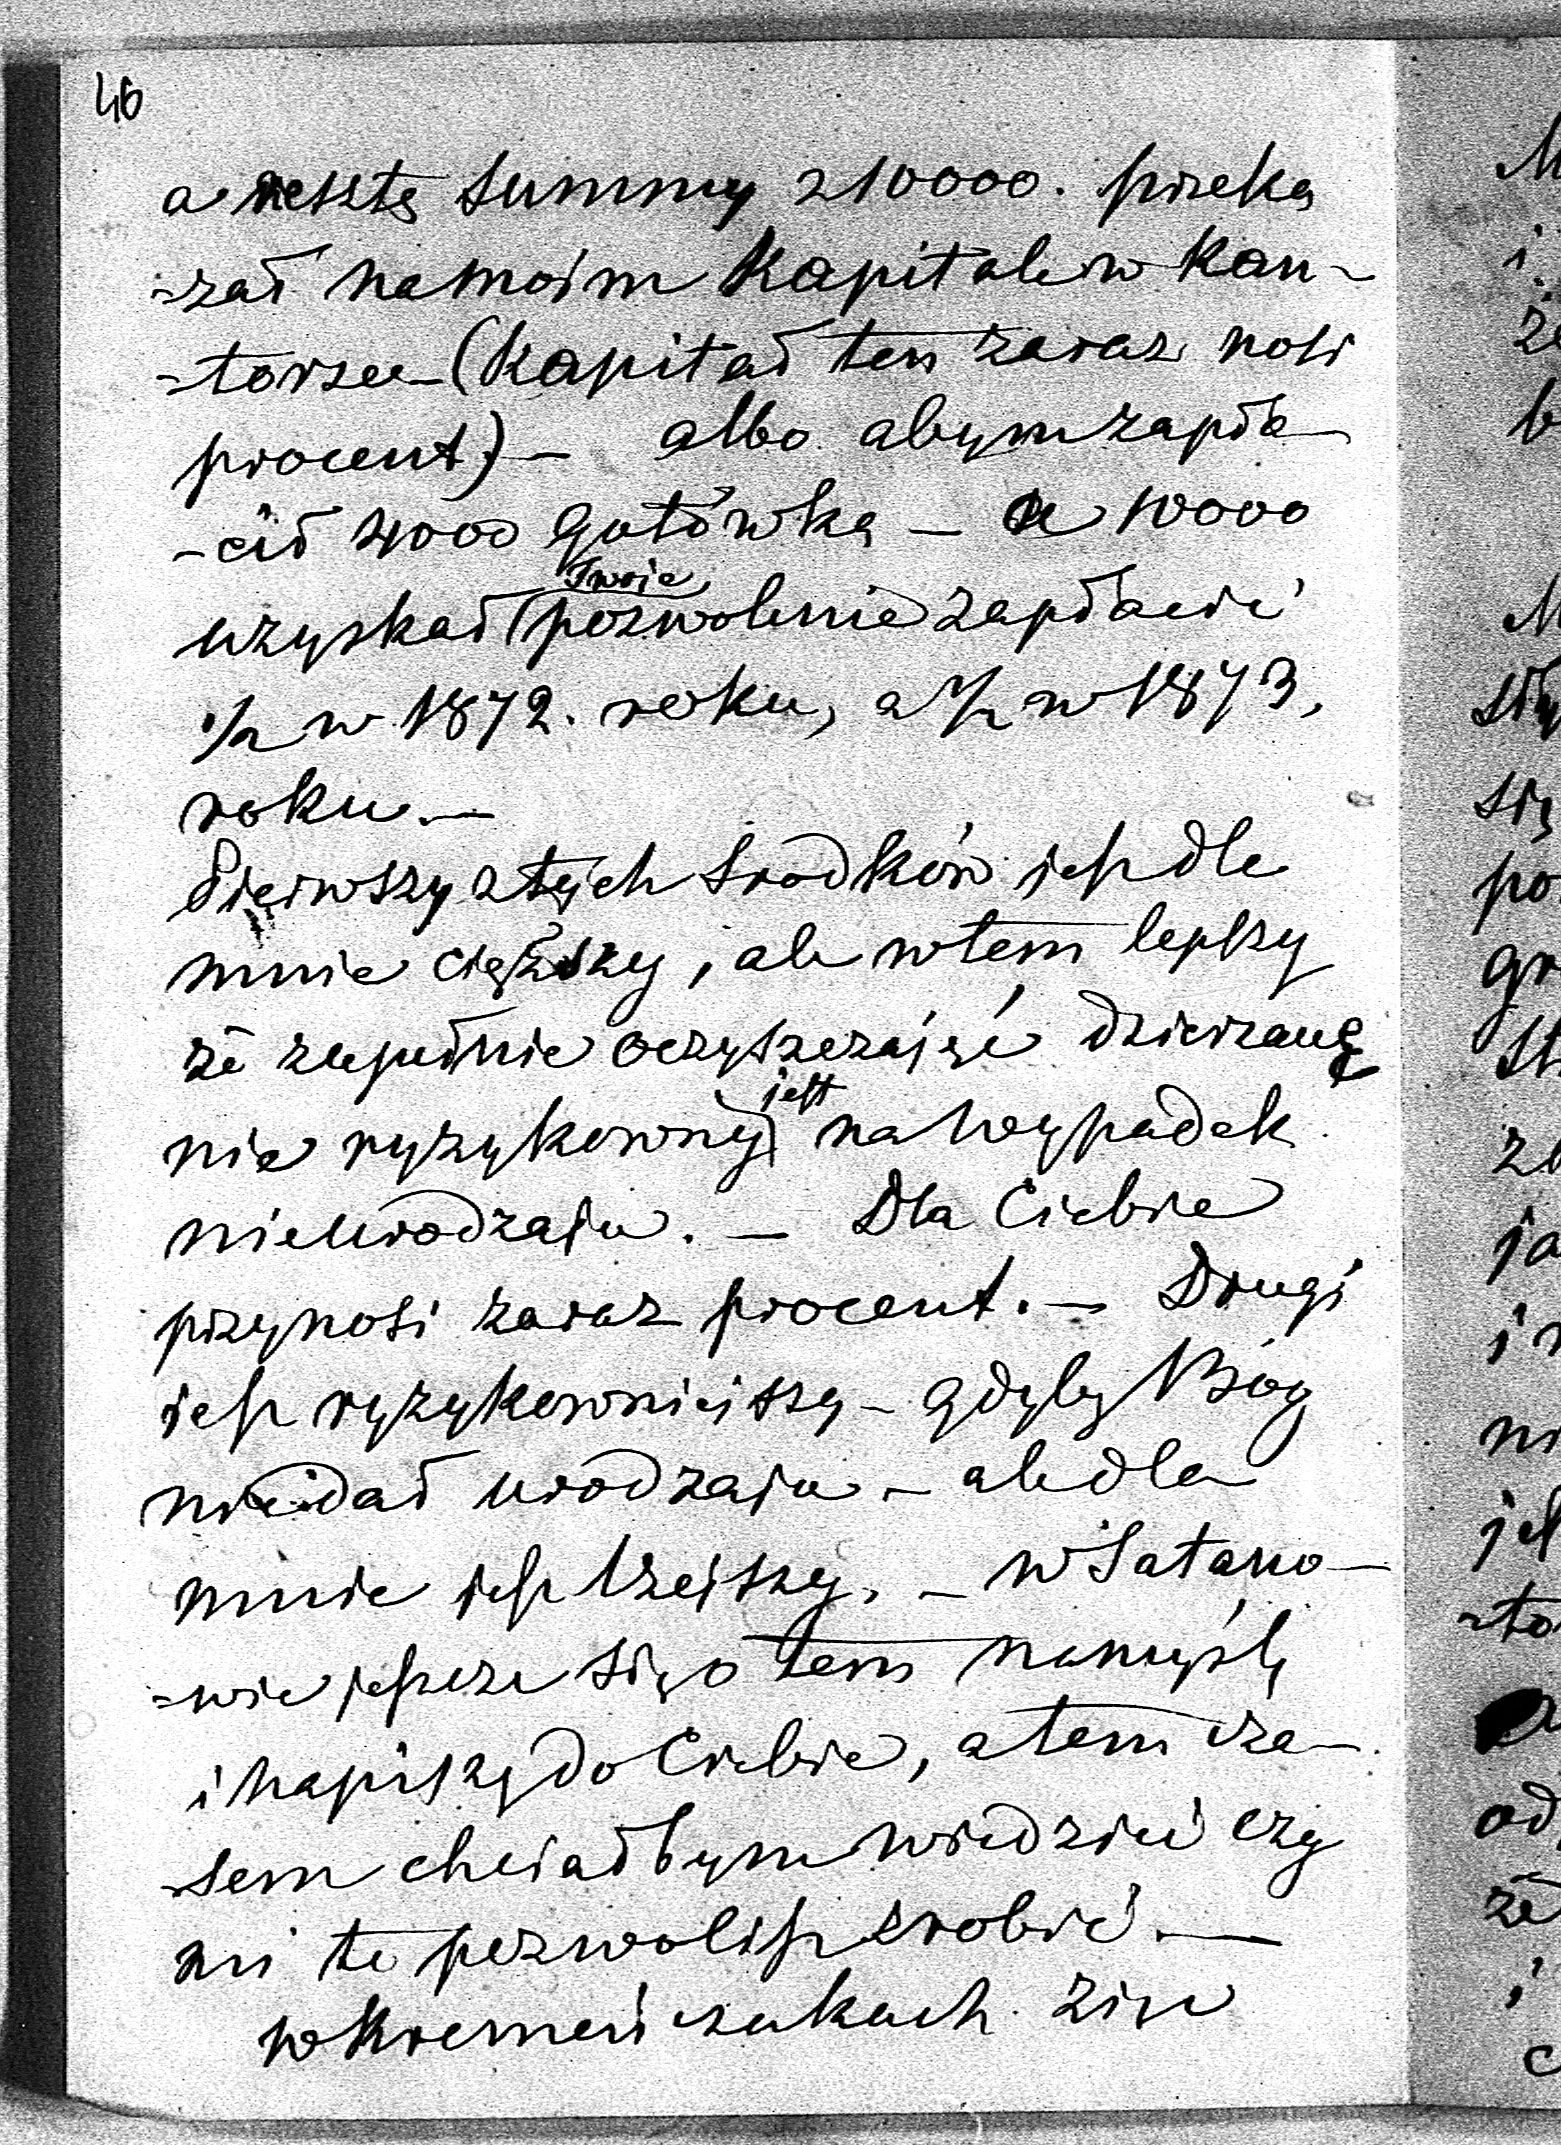 46
a resztę summy z 10000. przeka
-zał na moim Kapitale w Kan-
-torze - (Kapitał ten zaraz nosi
procent) - albo abym zapła-
-cił 4000 gotówką - a 10000
uzyskał Twoie pozwolenie zapłacić
1/2 w 1872. roku, a 1/2 w 1873,
roku. -
Pierwszy z tych srodków jest dla
mnie cięższy, ale w tem lepszy
że zupełnie oczyszczając dzierzawę
nie ryzykowny jest na wypadek
nieurodzaju. - Dla Ciebie
przynosi zaraz procent. - Drugi
jest ryzykowniejszy - gdyby Bóg
nie dał urodzaju - ale dla
mnie jest lżejszy. - w Satano-
-wie jeszcze się o tem namyślę
i napiszę do Ciebie, a tem cza-
-sem chciałbym wiedzieć czy
mi to pozwolisz zrobić. -
w Kremeńczukach